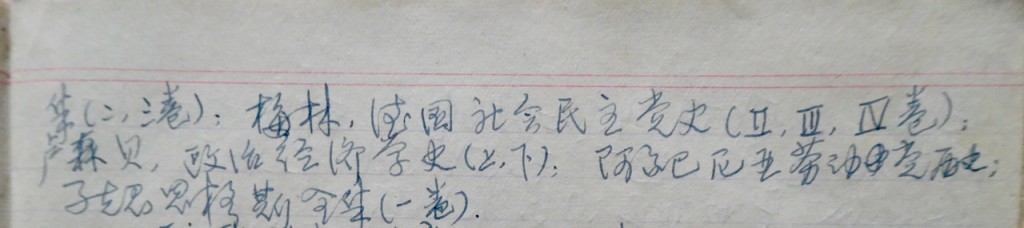 集(二,三卷);梅林,德国社会民主党史(II,III,IV卷);
卢森贝,政治经济学史(上,下);阿尔巴尼亚劳动党历史;
马克思恩格斯全集(一卷).